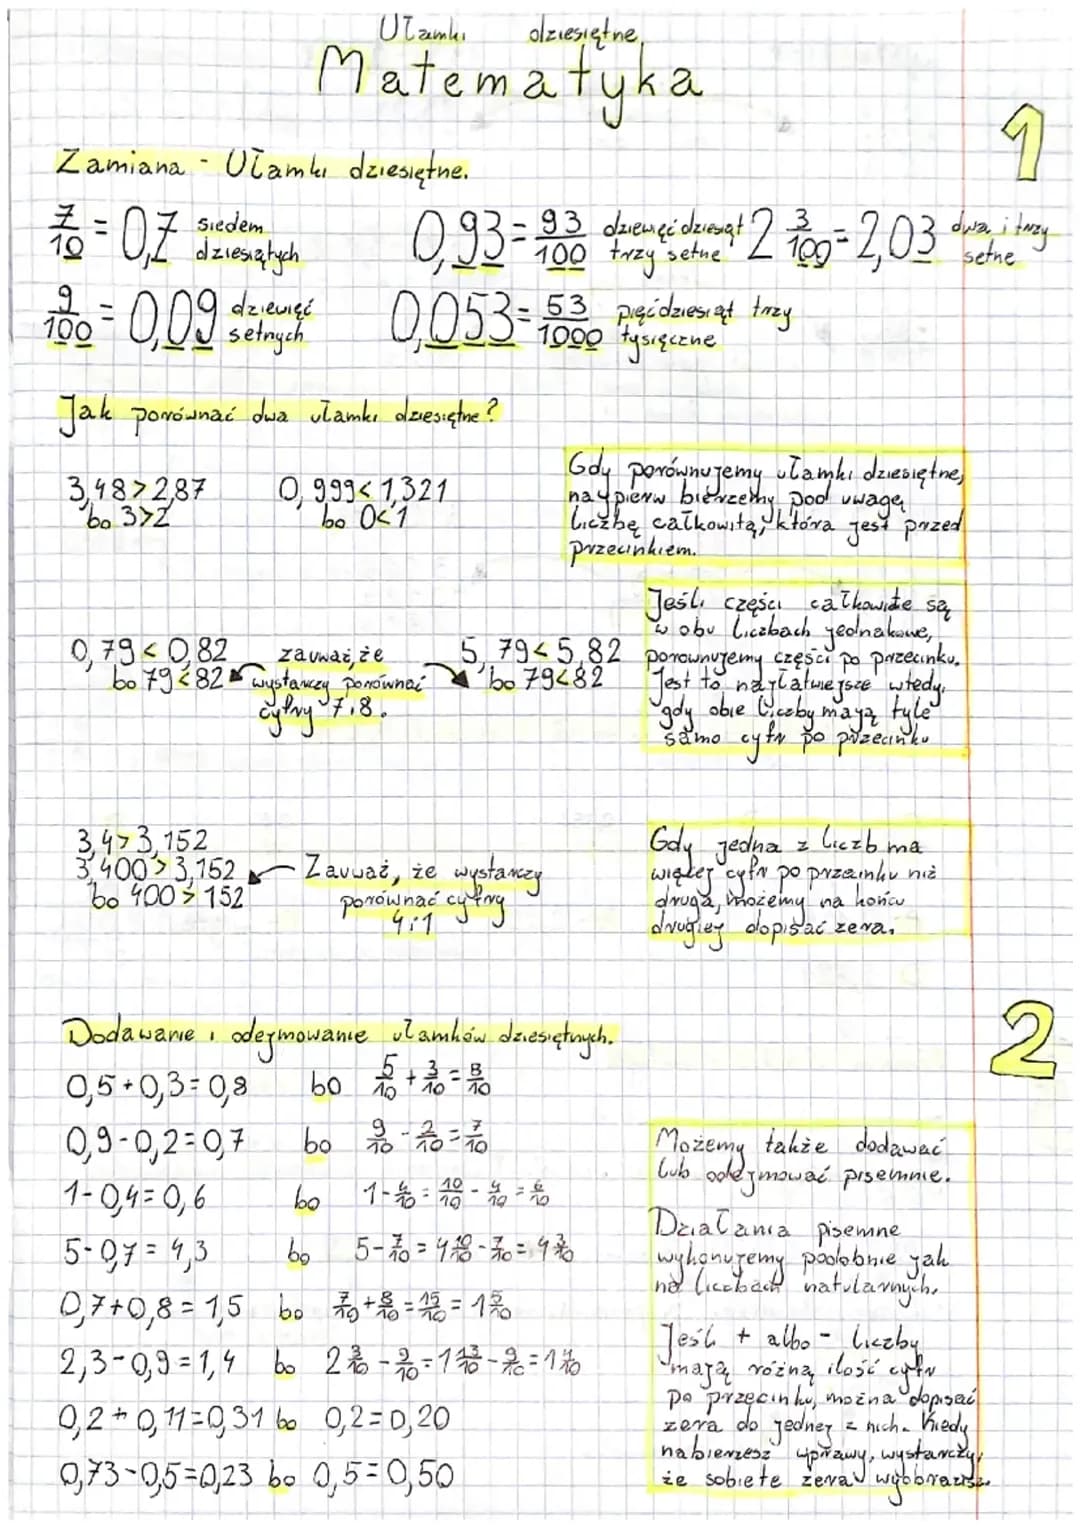 Ułamki dziesiętne
Matematyka
1
Zamiana - Ułamki dziesiętne.
7/10 = 0,7 siedem dziesiątych
0,93 = 93/100 dziewięćdziesiąt trzy setne
2 3/100 = 2,03 dwa i trzy setne
9/100 = 0,09 dziewięć setnych
0,053 = 53/1000 pięćdziesiąt trzy tysięczne
Jak porównać dwa ułamki dziesiętne?
3,48 > 2,87
bo 3>2
0,999 < 1,321
bo 0<1
Gdy porównujemy ułamki dziesiętne,
najpierw bierzemy pod uwagę
liczbę całkowitą, która jest przed
przecinkiem.
0,79 < 0,82
bo 79<82
zauważ, że
wystarczy porównać
cyfry 7 i 8.
5,79 < 5,82
bo 79<82
Jeśli części całkowite są
w obu liczbach jednakowe,
porownujemy części po przecinku.
Jest to najłatwiejsze wtedy,
gdy obie liczby mają tyle
samo cyfr po przecinku
3,4 > 3,152
3,400 > 3,152
bo 400 > 152
Zauważ, że wystarczy
porównać cyfry
4 i 1
Gdy jedna z liczb ma
więcej cyfr po przecinku niż
druga, możemy na końcu
drugiej dopisać zera.
2
Dodawanie i odejmowanie ułamków dziesiętnych.
0,5+0,3=0,8 bo 5/10 + 3/10 = 8/10
0,9-0,2=0,7 bo 9/10 - 2/10 = 7/10
1-0,4=0,6 bo 1-4/10 = 10/10 - 4/10 = 6/10
5-0,7=4,3 bo 5-7/10 = 4 10/10 - 7/10 = 4 3/10
0,7+0,8=1,5 bo 7/10 + 8/10 = 15/10 = 1 5/10
2,3-0,9=1,4 bo 2 3/10 - 9/10 = 1 13/10 - 9/10 = 1 4/10
0,2+0,11=0,31 bo 0,2=0,20
0,73-0,5=0,23 bo 0,5=0,50
Możemy także dodawać
lub odejmować pisemnie.
Działania pisemne
wykonujemy podobnie jak
na liczbach naturalnych.
Jeśli + albo - liczby
mają różną ilość cyfr
po przecinku, można dopisać
zera do jednej z nich. Kiedy
nabierzesz wprawy, wystarczy,
że sobie te zera wyobrazisz.